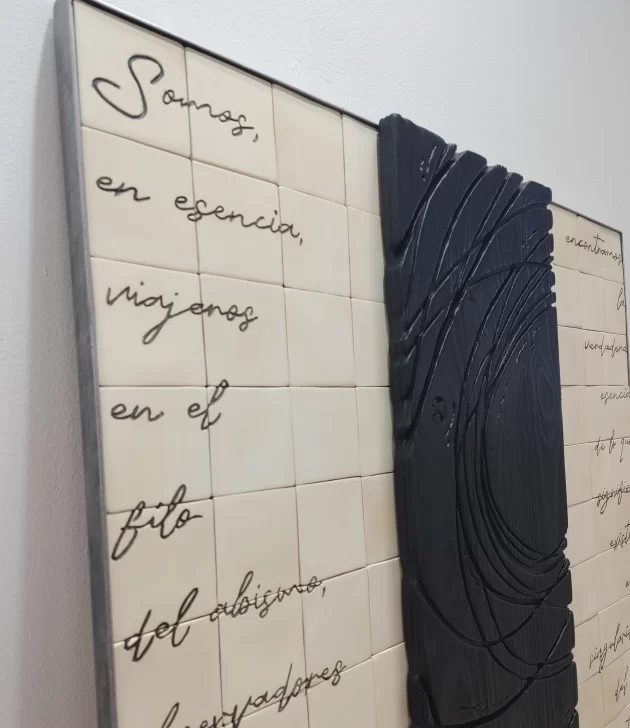 Somos,
en esencia,
viajeros
en el
filo
del abismo,
observadores
encontramos
la
verdadera
esencia
de lo que
significa
existir
singular
del